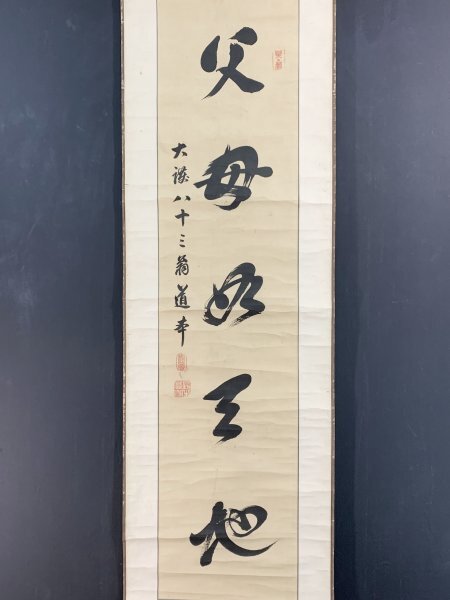 父母如天地
大 八十三翁道本